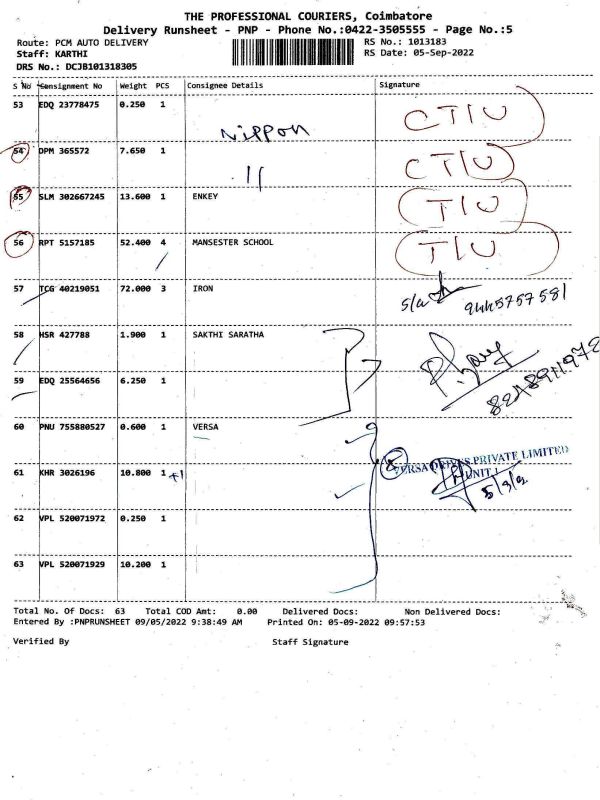 THE PROFESSIONAL COURIERS, Coimbatore
Delivery Runsheet - PNP - Phone No.:0422-3505555 - Page No.:5
Route: PCM AUTO DELIVERY RS No.: 1013183
Staff: KARTHI RS Date: 05-Sep-2022
DRS No.: DCJB101318305
S No Consignment No Weight PCS Consignee Details Signature
53 EDQ 23778475 0.250 1
Nippon
54 DPM 365572 7.650 1
11
55 SLM 302667245 13.600 1 ENKEY
56 RPT 5157185 52.400 4 MANSESTER SCHOOL
57 TCG 40219051 72.000 3 IRON
58 HSR 427788 1.900 1 SAKTHI SARATHA
59 EDQ 25564656 6.250 1
60 PNU 755880527 0.600 1 VERSA
VERSA DRIVES PRIVATE LIMITED
UNIT 1
61 KHR 3026196 10.800 1 +1
62 VPL 520071972 0.250 1
63 VPL 520071929 10.200 1
Total No. Of Docs: 63 Total COD Amt: 0.00 Delivered Docs: Non Delivered Docs:
Entered By :PNPRUNSHEET 09/05/2022 9:38:49 AM Printed On: 05-09-2022 09:57:53
Verified By Staff Signature